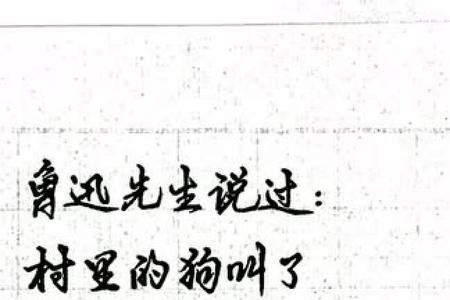 鲁迅先生说过：
村里的狗叫了